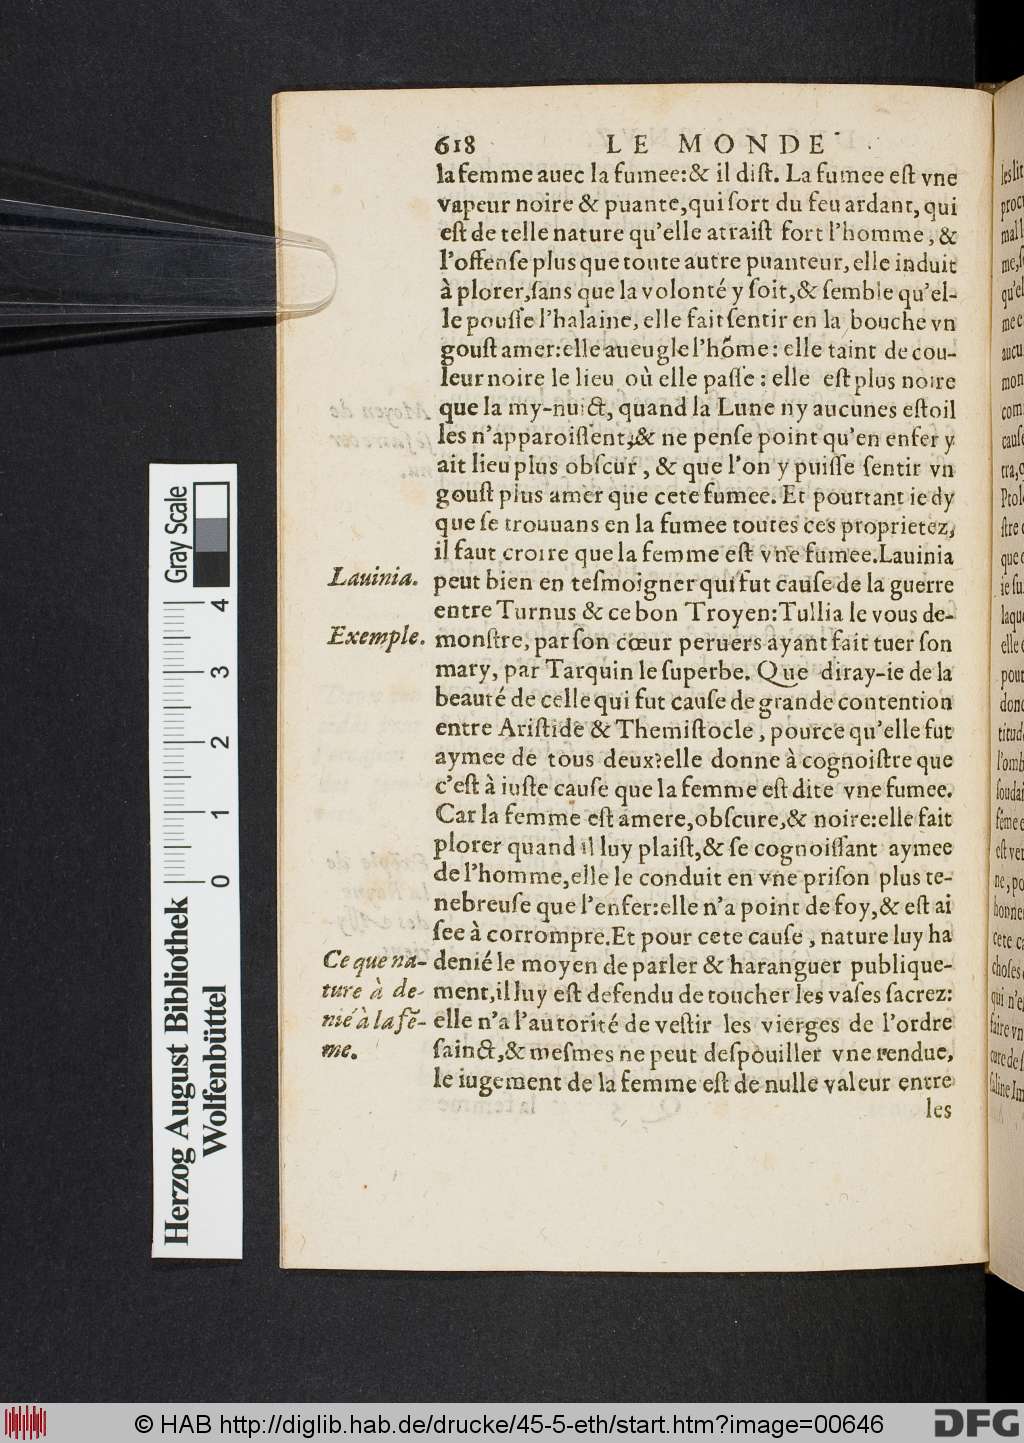 618 LE MONDE
la femme auec la fumee:& il dist. La fumee est vne
vapeur noire & puante, qui sort du feu ardant, qui
est de telle nature qu'elle atraist fort l'homme, &
l'offense plus que toute autre puanteur, elle induit
à plorer, sans que la volonté y soit, & semble qu'el-
le pousse l'halaine, elle fait sentir en la bouche vn
goust amer: elle aueugle l'hõme: elle taint de cou-
leur noire le lieu où elle passe: elle est plus noire
que la my-nuict, quand la Lune ny aucunes estoil
les n'apparoissent, & ne pense point qu'en enfer y
ait lieu plus obscur, & que l'on y puisse sentir vn
goust plus amer que cete fumee. Et pourtant ie dy
que se trouuans en la fumee toutes ces proprietez,
il faut croire que la femme est vne fumee. Lauinia
Lauinia.
peut bien en tesmoigner qui fut cause de la guerre
entre Turnus & ce bon Troyen: Tullia le vous de-
Exemple.
monstre, par son cœur peruers ayant fait tuer son
mary, par Tarquin le superbe. Que diray-ie de la
beauté de celle qui fut cause de grande contention
entre Aristide & Themistocle, pource qu'elle fut
aymee de tous deux? elle donne à cognoistre que
c'est à iuste cause que la femme est dite vne fumee.
Car la femme est amere, obscure, & noire: elle fait
plorer quand il luy plaist, & se cognoissant aymee
de l'homme, elle le conduit en vne prison plus te-
nebreuse que l'enfer: elle n'a point de foy, & est ai
see à corrompre. Et pour cete cause, nature luy ha
Ce que na-
ture à de-
nié à la fẽ-
me.
denié le moyen de parler & haranguer publique-
ment, il luy est defendu de toucher les vases sacrez:
elle n'a l'autorité de vestir les vierges de l'ordre
sainct, & mesmes ne peut despouiller vne rendue,
le iugement de la femme est de nulle valeur entre
les
Gray Scale
0 1 2 3 4
Herzog August Bibliothek
Wolfenbüttel
© HAB http://diglib.hab.de/drucke/45-5-eth/start.htm?image=00646
DFG